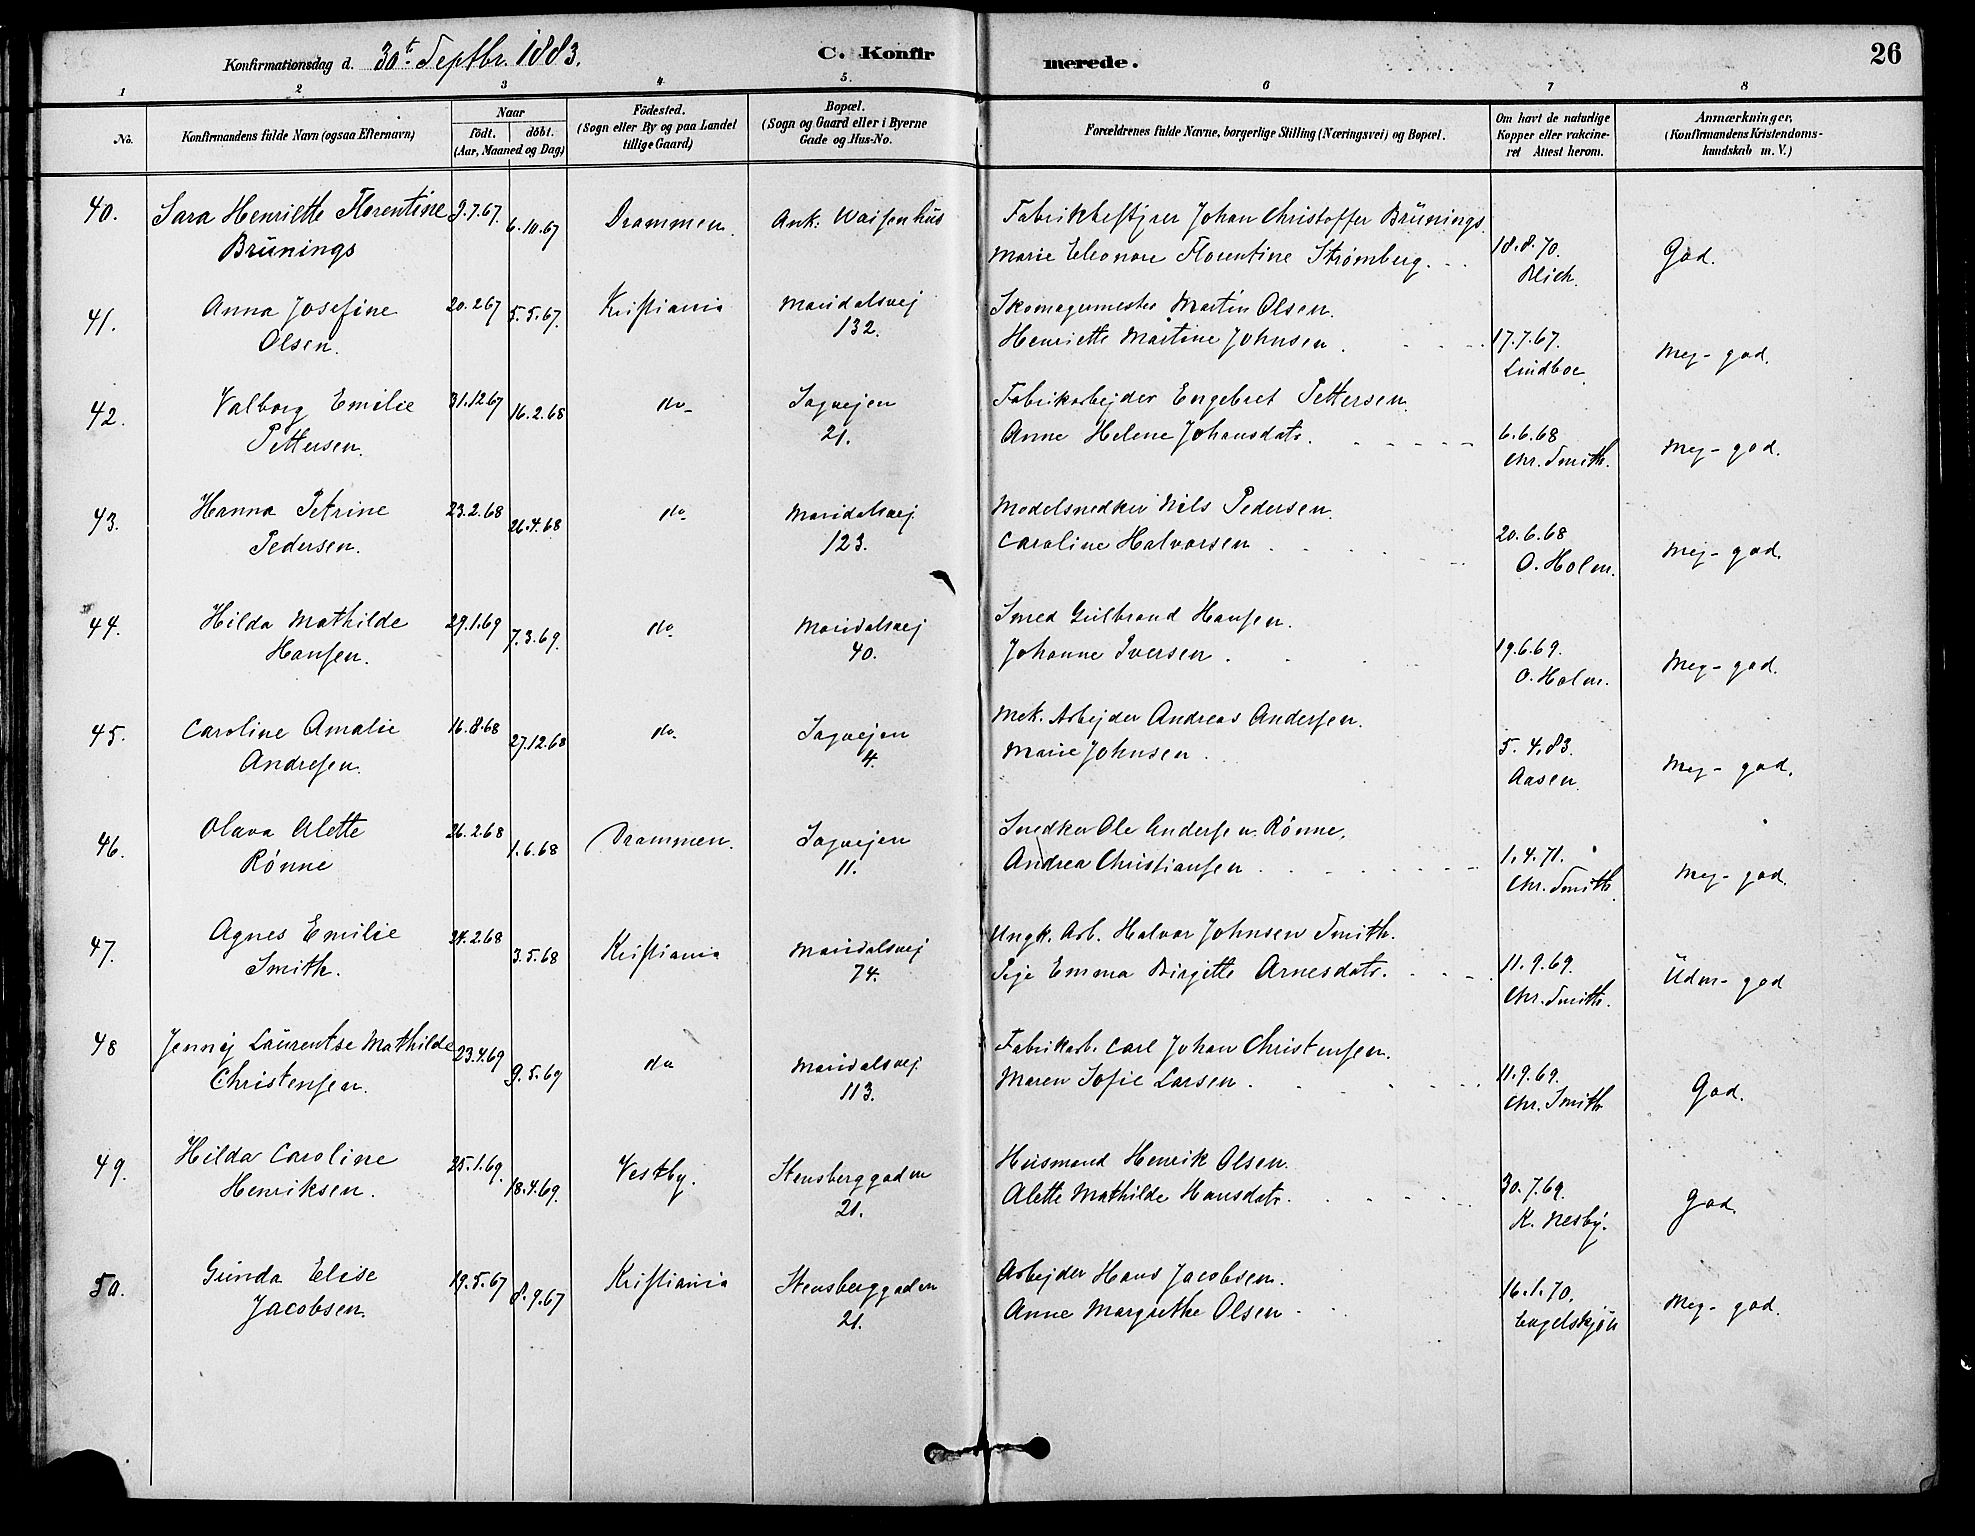 Konfirmationsdag d. 30t Septbr. 1883. C. Konfirmerede. 26
1 2 3 4 5. 6 7 8
No. Konfirmandens fulde Navn (ogsaa Efternavn) Naar födt. döbt. (Aar, Maaned og Dag) Födested. (Sogn eller By og paa Landet tillige Gaard) Bopæl. (Sogn og Gaard eller i Byerne Gade og Hus-No. Forældrenes fulde Navne, borgerlige Stilling (Næringsvei) og Bopæl. Om havt de naturlige Kopper eller vakcineret Attest herom. Anmærkninger, (Konfirmandens Kristendomskundskab m. V.)
40. Sara Henriette Florentine 9.7.67. 6.10.67 Drammen. Ank. Waisenhus Fabrikbestyrer Johan Christoffer Brünings.
Brünings Marie Eleonore Florentine Strømberg. 18.8.70. Blich. God.
41. Anna Josefine 20.2.67 5.5.67. Kristiania Maridalsvej Skomagermester Martin Olsen.
Olsen. 132. Henriette Martine Johnsen. 17.7.67. Lindboe. Meg- god.
42. Valborg Emilie 31.12.67 16.2.68 do Sagvejen Fabrikarbejder Engebret Pettersen.
Pettersen. 21. Anne Helene Johansdatr. 6.6.68 Chr. Smith. Meg- god.
43. Hanna Petrine 23.2.68 26.4.68 do Maridalsvej Modelsnedker Nils Pedersen.
Pedersen. 123. Caroline Halvorsen 20.6.68 O. Holm. Meg- god.
44. Hilda Mathilde 29.1.69 7.3.69. do Maridalsvej Smed Gulbrand Hansen.
Hansen. 40. Johanne Iversen. 19.6.69. O. Holm. Meg- god.
45. Caroline Amalie 16.8.68 27.12.68 do Sagvejen Mek. Arbejder Andreas Andersen.
Andresen. 4. Marie Johnsen. 5.4.83. Aasen. Meg- god.
46. Olava Alette 26.2.68 1.6.68 Drammen. Sagvejen Snedker Ole Andersen Rønne,
Rønne 11. Andrea Christiansen. 1.4.71. Chr. Smith. Meg- god.
47. Agnes Emilie 24.2.68 3.5.68 Kristiania Maridalsvej Ungk. Arb. Halvor Johnsen Smith.
Smith. 74. Pige Emma Birgitte Arnesdatr. 11.9.69. Chr. Smith. Udm- god
48 Jenny Laurentse Mathilde 23.4.69 9.5.69 do Maridalsvej Fabrikarb. Carl Johan Christensen.
Christensen. 113. Maren Sofie Larsen. 11.9.69. Chr. Smith God.
49. Hilda Caroline 25.1.69. 18.4.69. Vestby. Stensberggaden Husmand Henrik Olsen.
Henriksen. 21. Alette Mathilde Hansdatr. 30.7.69. K. Nesby. God.
50. Gunda Elise 19.5.67 8.9.67 Kristiania Stensberggaden Arbejder Hans Jacobsen.
Jacobsen. 21. Anne Margrethe Olsen 16.1.70. Engelskjön Meg- god.